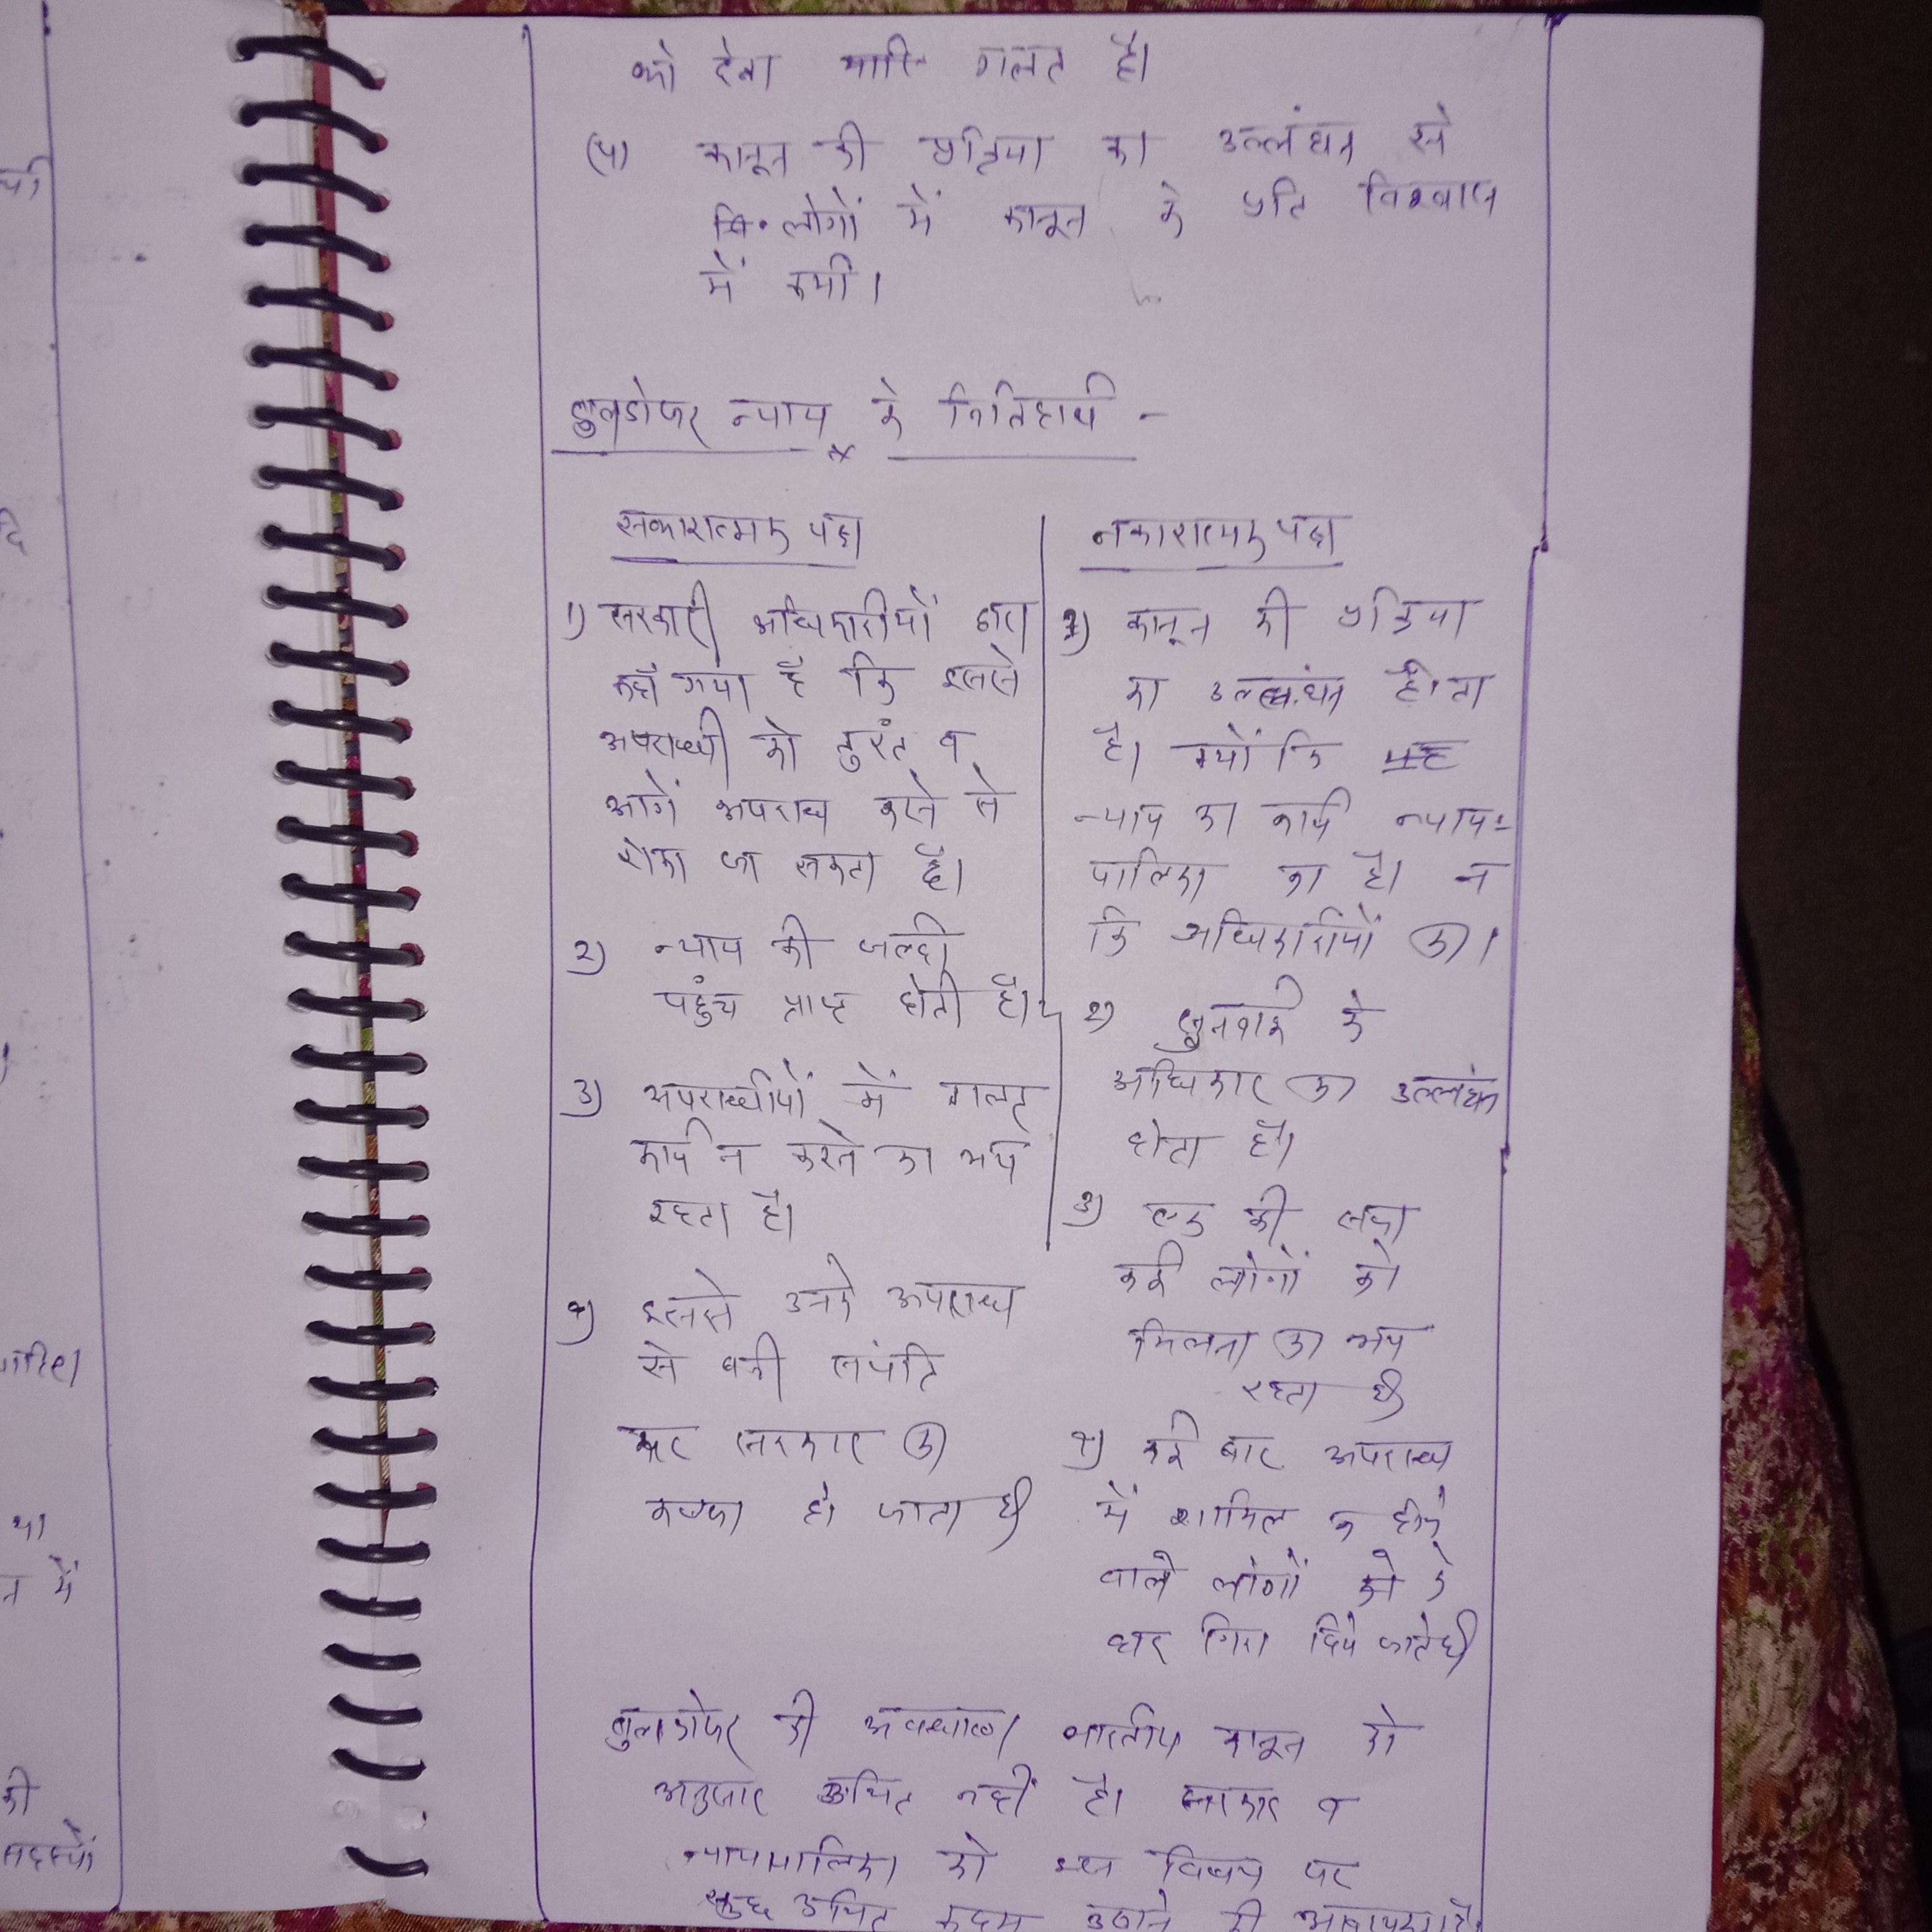 को देना भारि गलत है।
(४) कानून की प्रक्रिया का उल्लंघन से
लोगों में कानून के प्रति विश्वास
में कमी।
बुलडोजर न्याय के निहितार्थ -
सकारात्मक पक्ष
1) सरकारी अधिकारीयों द्वारा
कहाँ गया है कि इससे
अपराधी को तुरंत व
आगें अपराध करने से
रोका जा सकता है।
2) न्याय की जल्दी
पहुंच प्राप्त होती है।
3) अपराधीयों में गलत
कार्य न करने का भय
रहता है।
४) इससे उनके अपराध
से बनी संपति
पर सरकार का
कब्जा हो जाता है
नकारात्मक पक्ष
1) कानून की प्रक्रिया
का उल्लंघन होता
है। क्यों कि
न्याय का कार्य न्याय-
पालिका का है। न
कि अधिकारीयों का।
2) सुनवाई के
अधिकार का उल्लंघन
होता है।
3) एक की सजा
कई लोगों को
मिलना का भय
रहता है
४) कई बार अपराध
में शामिल न होने
वाले लोगों के
घर गिरा दिये जाते है
बुलडोजर की अवधारणा भारतीय कानून के
अनुसार उचित नहीं है। सरकार व
न्यायपालिका को इस विषय पर
कुछ उचित कदम उठाने की आवश्यकता है।
यी
दि
था
न में
की
सदस्यों